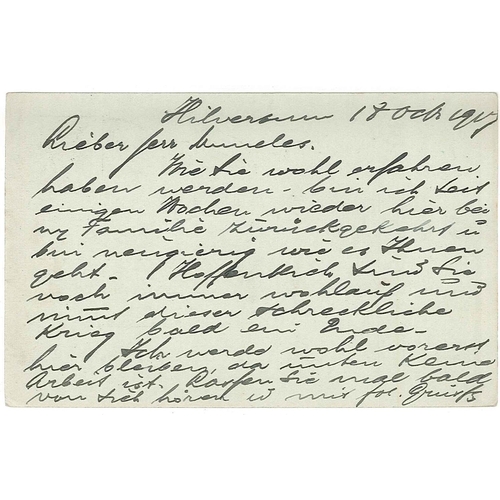 Hilversum 18 Oct 1917
Lieber Herr
Wie Sie wohl erfahren
haben werden - bin ich seit
einigen Wochen wieder hier bei
m/ Familie zurückgekehrt u
bin neugierig wie es Ihnen
geht - Hoffentlich sind Sie
noch immer wohlauf und
nimt dieser schreckliche
Krieg bald ein Ende -
Ich werde wohl vorerst
hier bleiben, da unten keine
Arbeit ist. Lassen Sie mal bald
von sich hören u mit frl. Gruß